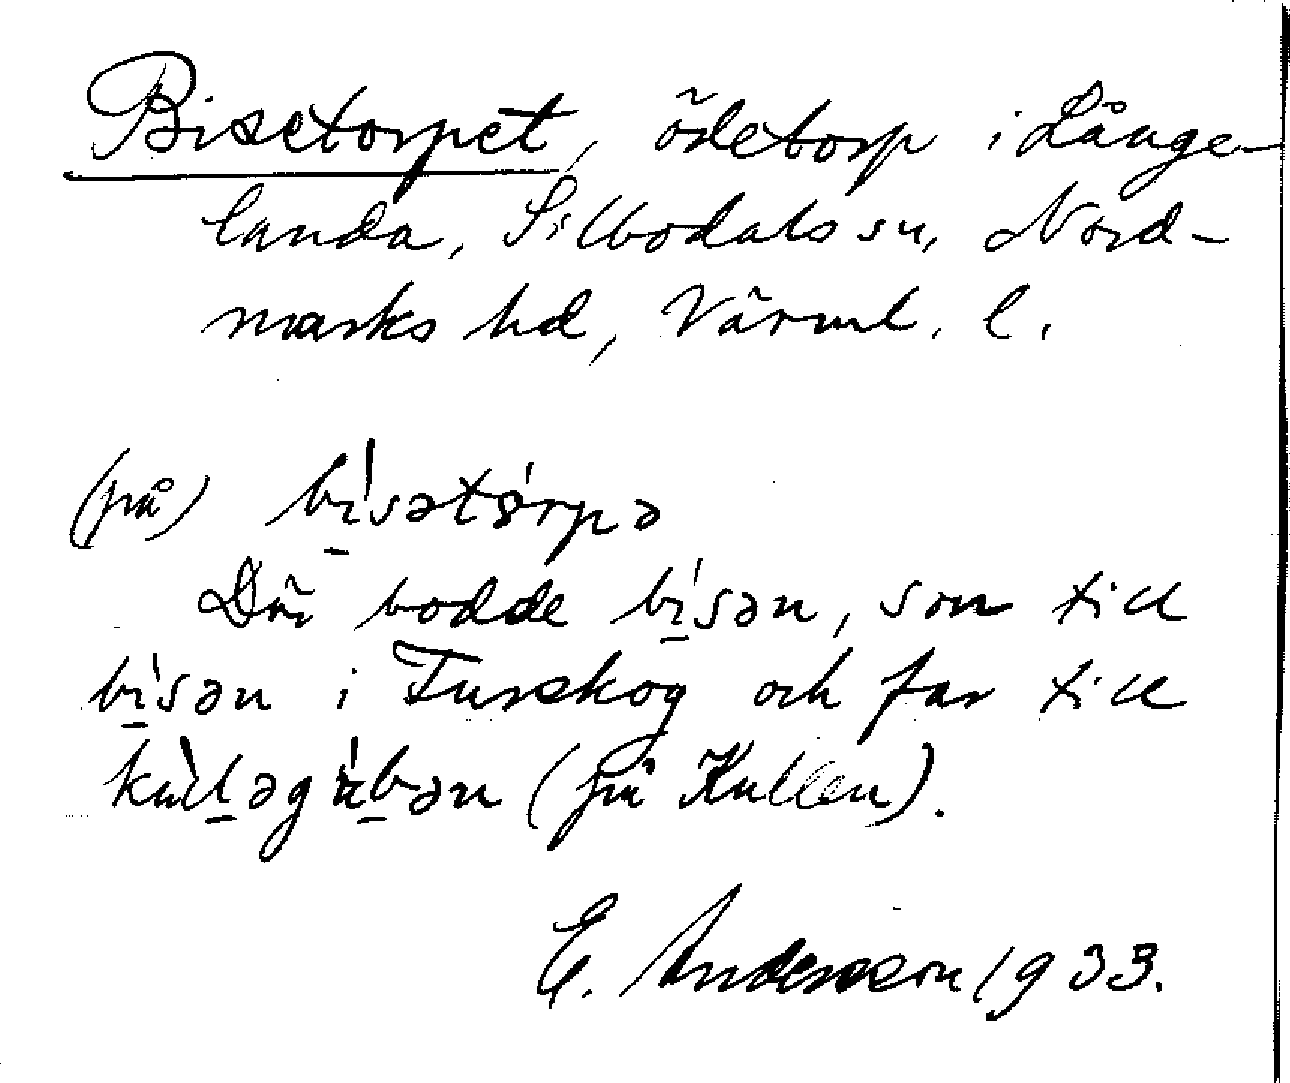 Bisetorpet, ödetorp i Långe-
landa, Silbodals sn, Nord-
marks hd, Värml. l.
(på) bi̠'sətórpə
Där bodde bi̠'sən, son till
bi̠'sən i Turskog och far till
kul̠əgu̠bən (på Kullen).
E. Andersson 1933.